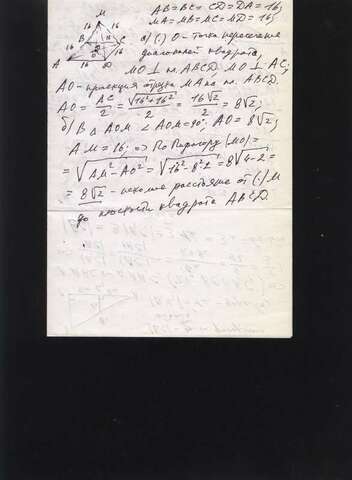 M
16 16
16 16
B C
A 16 D
AB=BC=CD=DA=16;
MA=MB=MC=MD=16;
а) (·) O - точка пересечения
диагоналей квадрата,
MO⊥ пл. ABCD, MO⊥AC;
AO - проекция отрезка MA на пл. ABCD.
AO = AC/2 = √(16²+16²)/2 = 16√2/2 = 8√2;
б) В Δ AOM ∠AOM=90°; AO=8√2;
AM=16; => По Пифагору (MO)=
=√(AM²-AO²)=√(16²-8²·2)=8√(4-2)=
=8√2 - искомое расстояние от (·) M
до плоскости квадрата ABCD